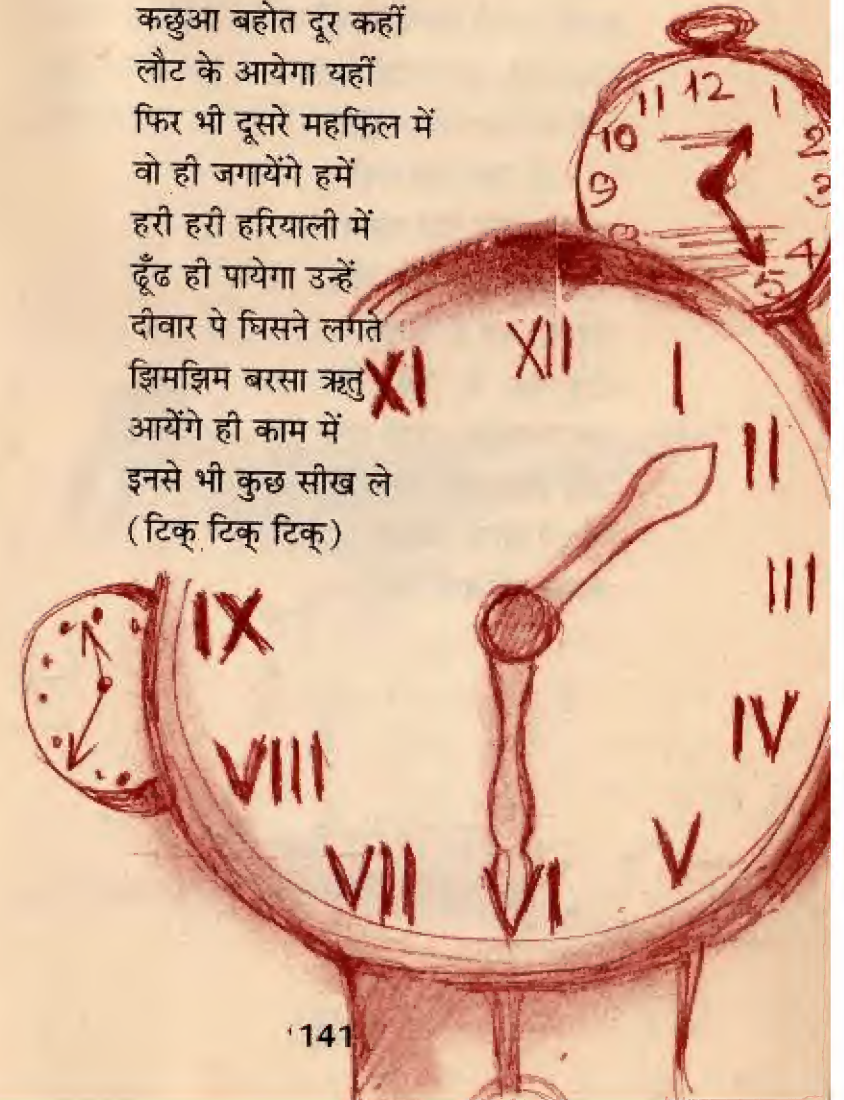 कछुआ बहोत दूर कहीं
लौट के आयेगा यहीं
फिर भी दूसरे महफिल में
वो ही जगायेंगे हमें
हरी हरी हरियाली में
ढूँढ ही पायेगा उन्हें
दीवार पे घिसने लगते
झिमझिम बरसा ऋतु
आयेंगे ही काम में
इनसे भी कुछ सीख ले
(टिक् टिक् टिक्)
11 12 1
10 2
9 3
8 4
5
XI XII I
II
III
IX
IV
VIII
V
VII VI
141